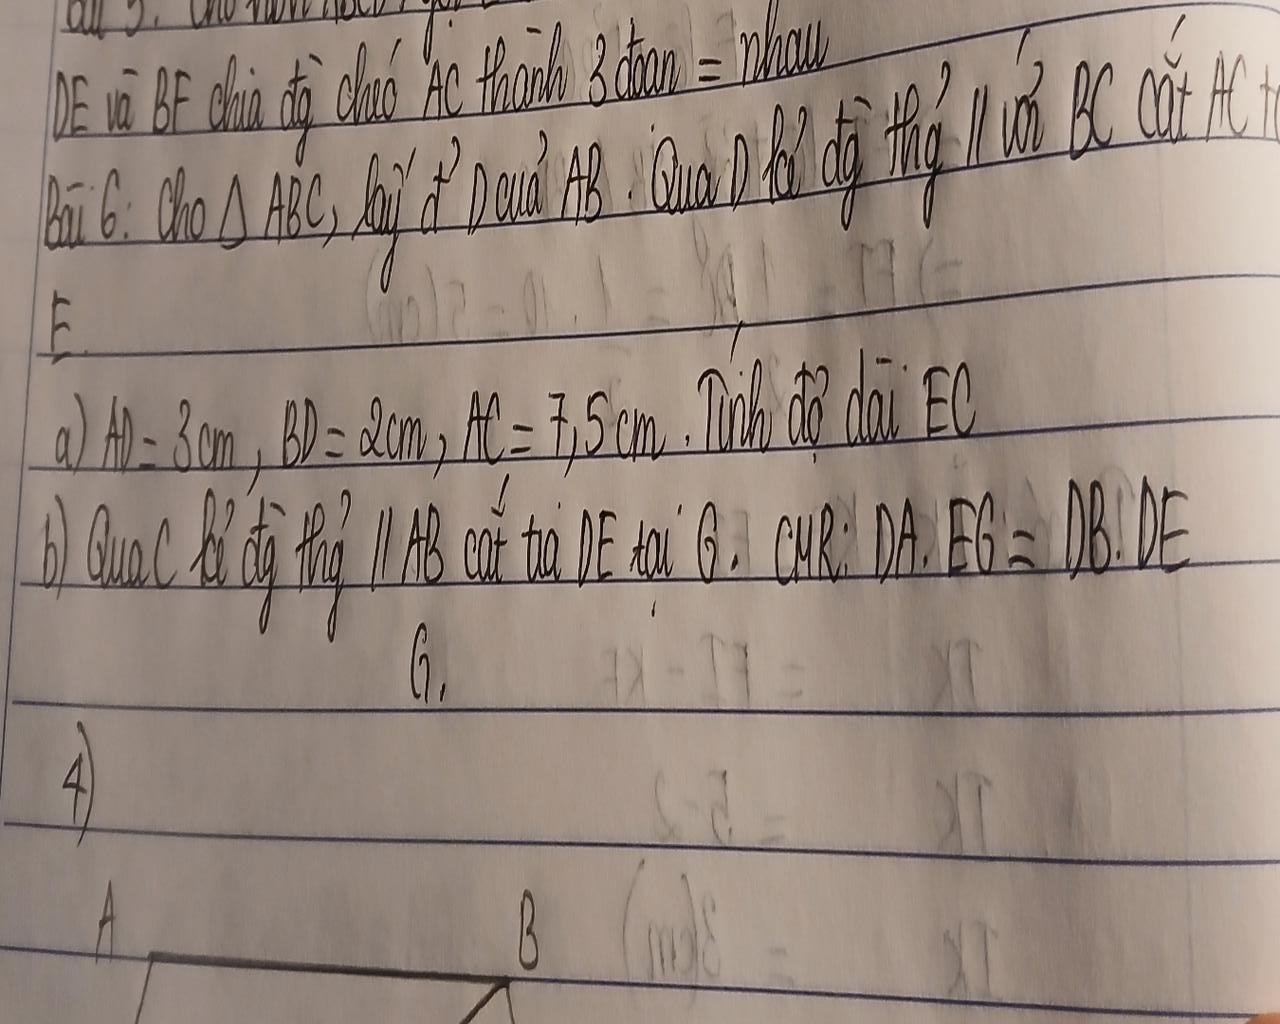 Bài 5. Cho
DE và BF chia đg̀ chéo AC thành 3 đoạn = nhau
Bài 6: Cho Δ ABC, lấy đ' D của AB. Qua D kẻ đg̀ thg̉ // với BC cắt AC
E
a) AD = 3cm, BD = 2cm, AC = 7,5cm. Tính độ dài EC
b) Qua C kẻ đg̀ thg̉ // AB cắt tia DE tại G. CMR: DA. EG = DB. DE
G.
4)
A B